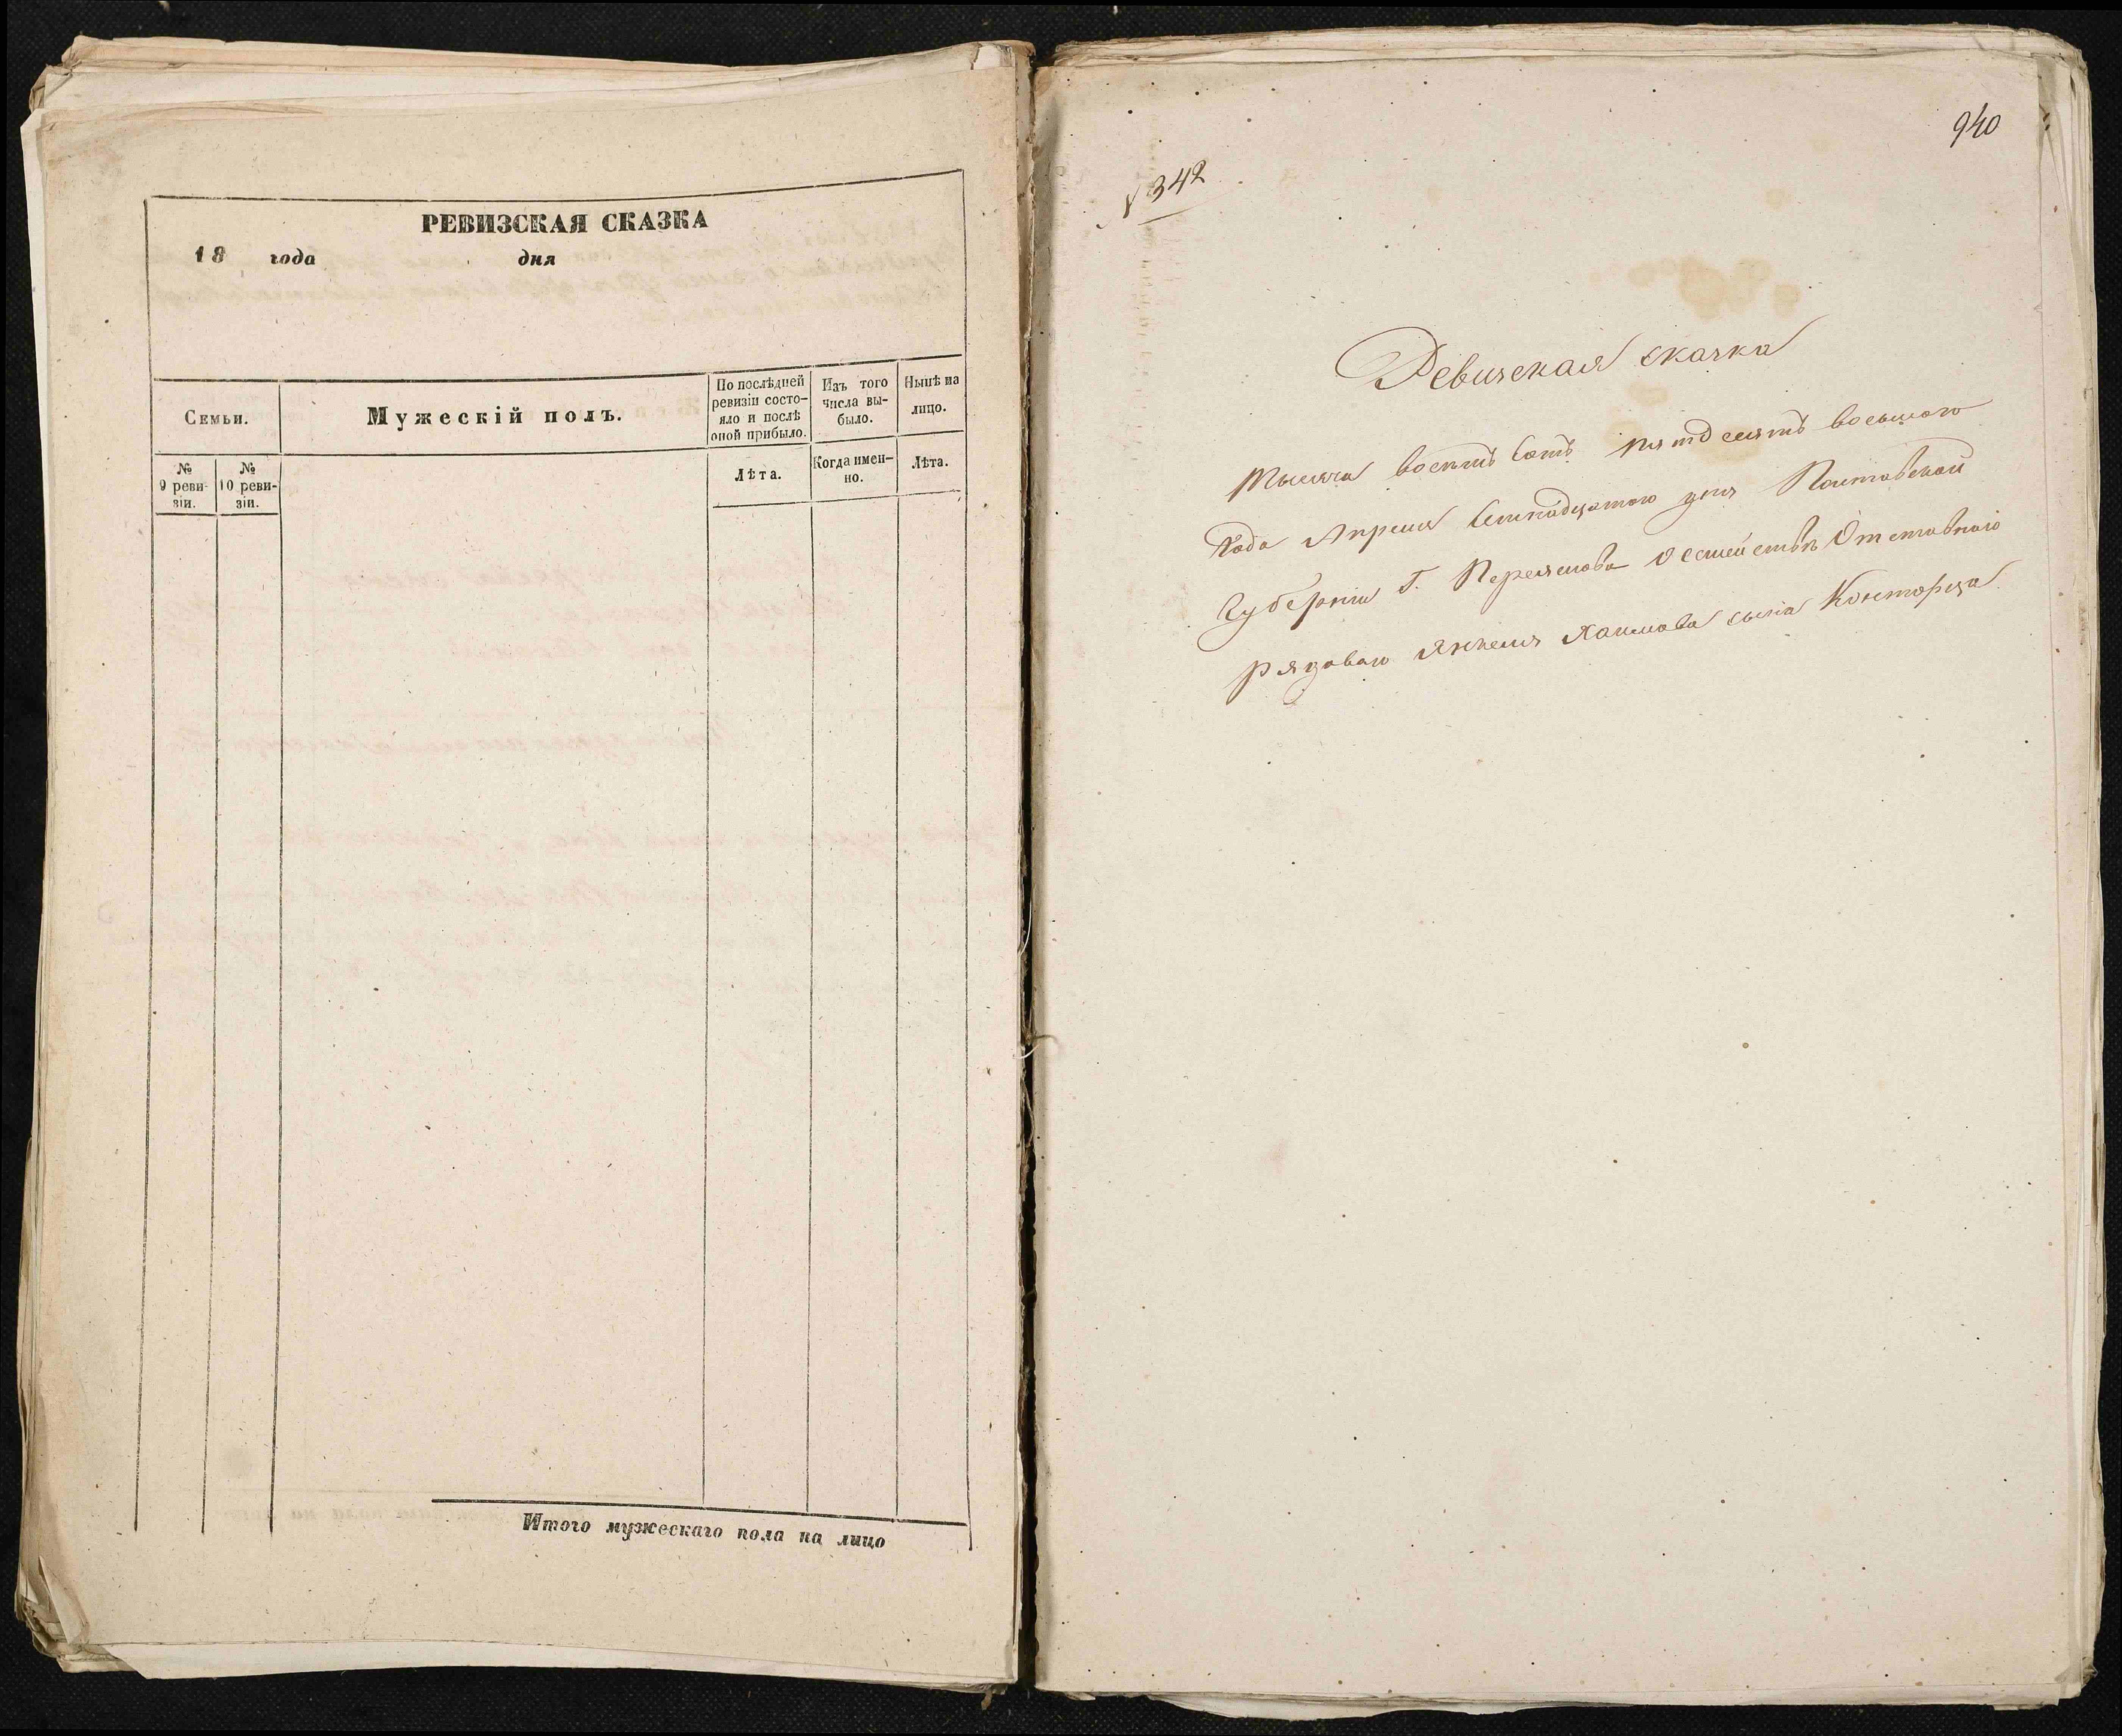 РЕВИЗСКАЯ СКАЗКА
18 года дня
Семьи.
Мужескій полъ.
По послѣдней ревизіи состо-
яло и послѣ
оной прибыло.
Изъ того
числа вы-
было.
Нынѣ на
лицо.
№
9 реви-
зіи.
№
10 реви-
зіи.
Лѣта.
Когда имен-
но.
Лѣта.
Итого мужескаго пола на лицо
940
342
Ревизская сказка
Тысяча восемь сотъ пятдесятъ восьмого
года Апреля семнадцатого дня Полтавской
Губерніи Г. Переяслова О семействѣ Отставнаго
рядоваго Янкеля Хаимова сына